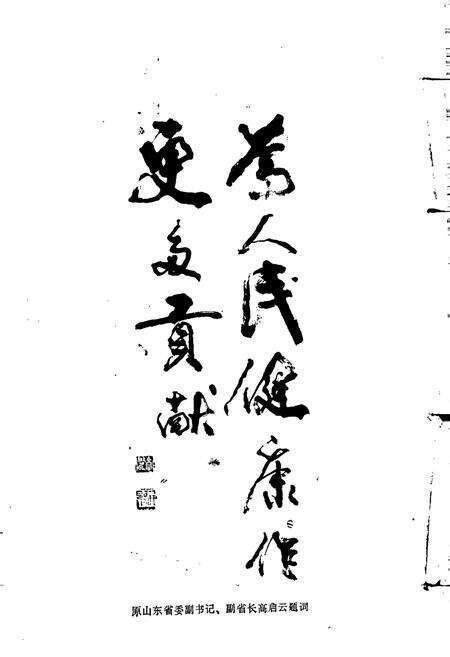 为人民健康作
更多贡献
原山东省委副书记、副省长高启云题词